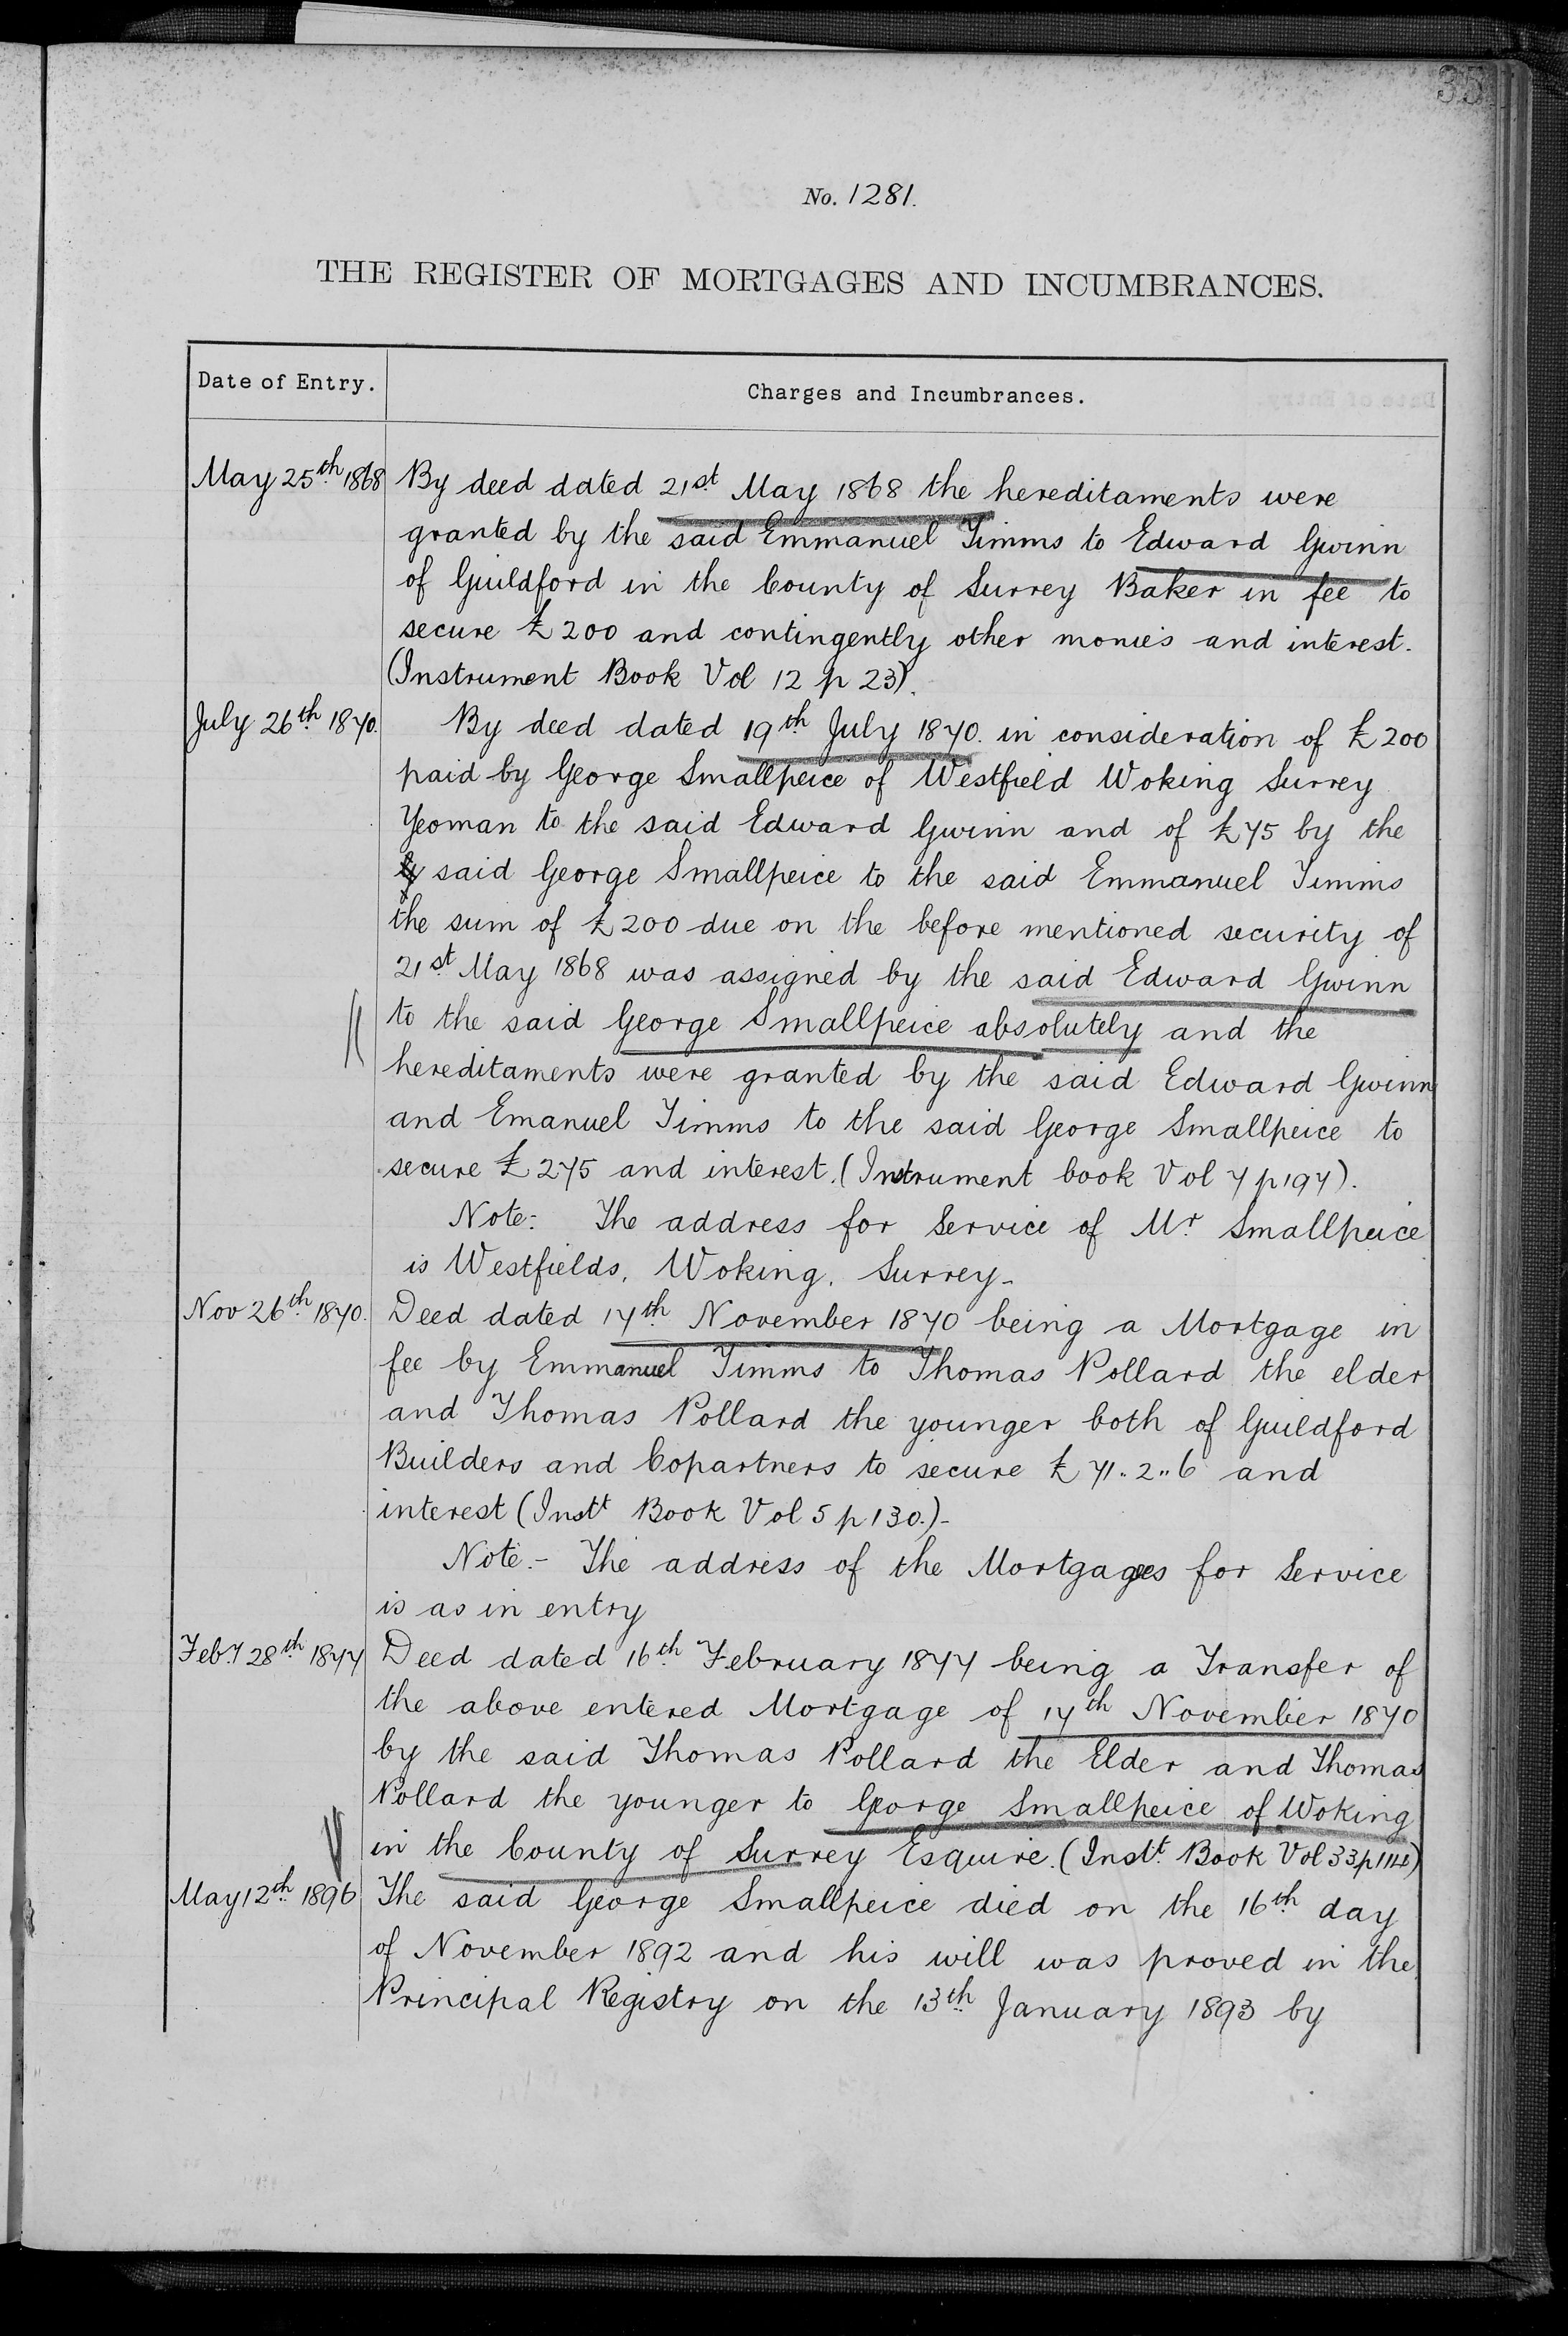 35
No. 1281.
THE REGISTER OF MORTGAGES AND INCUMBRANCES.
Date of Entry.
Charges and Incumbrances.
May 25th 1868 By deed dated 21st May 1868 the hereditaments were
granted by the said Emmanuel Timms to Edward Gwinn
of Guildford in the County of Surrey Baker in fee to
secure £200 and contingently other monies and interest.
(Instrument Book Vol 12 p 23).
July 26th 1870. By deed dated 19th July 1870. in consideration of £200
paid by George Smallpeice of Westfield Woking Surrey
Yeoman to the said Edward Gwinn and of £75 by the
said George Smallpeice to the said Emmanuel Timms
the sum of £200 due on the before mentioned security of
21st May 1868 was assigned by the said Edward Gwinn
to the said George Smallpeice absolutely and the
hereditaments were granted by the said Edward Gwinn
and Emanuel Timms to the said George Smallpeice to
secure £275 and interest. (Instrument book Vol 7 p 197).
Note:- The address for Service of Mr Smallpeice
is Westfields, Woking, Surrey-
Nov 26th 1870. Deed dated 17th November 1870 being a Mortgage in
fee by Emmanuel Timms to Thomas Pollard the elder
and Thomas Pollard the younger both of Guildford
Builders and Copartners to secure £71..2..6 and
interest (Instt Book Vol 5 p 130.)-
Note.- The address of the Mortgagees for Service
is as in entry
Feby 28th 1877 Deed dated 16th February 1877 being a Transfer of
the above entered Mortgage of 17th November 1870
by the said Thomas Pollard the Elder and Thomas
Pollard the younger to George Smallpeice of Woking
in the County of Surrey Esquire. (Instt Book Vol 33 p 114)
May 12th 1896 The said George Smallpeice died on the 16th day
of November 1892 and his will was proved in the
Principal Registry on the 13th January 1893 by